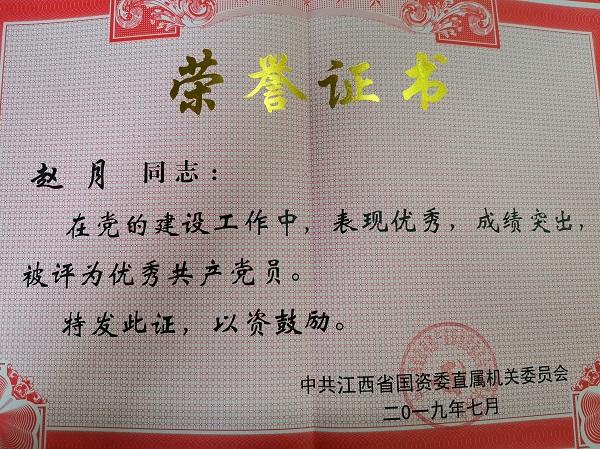 荣誉证书
赵月 同志：
在党的建设工作中，表现优秀，成绩突出，
被评为优秀共产党员。
特发此证，以资鼓励。
中共江西省国资委直属机关委员会
二0一九年七月